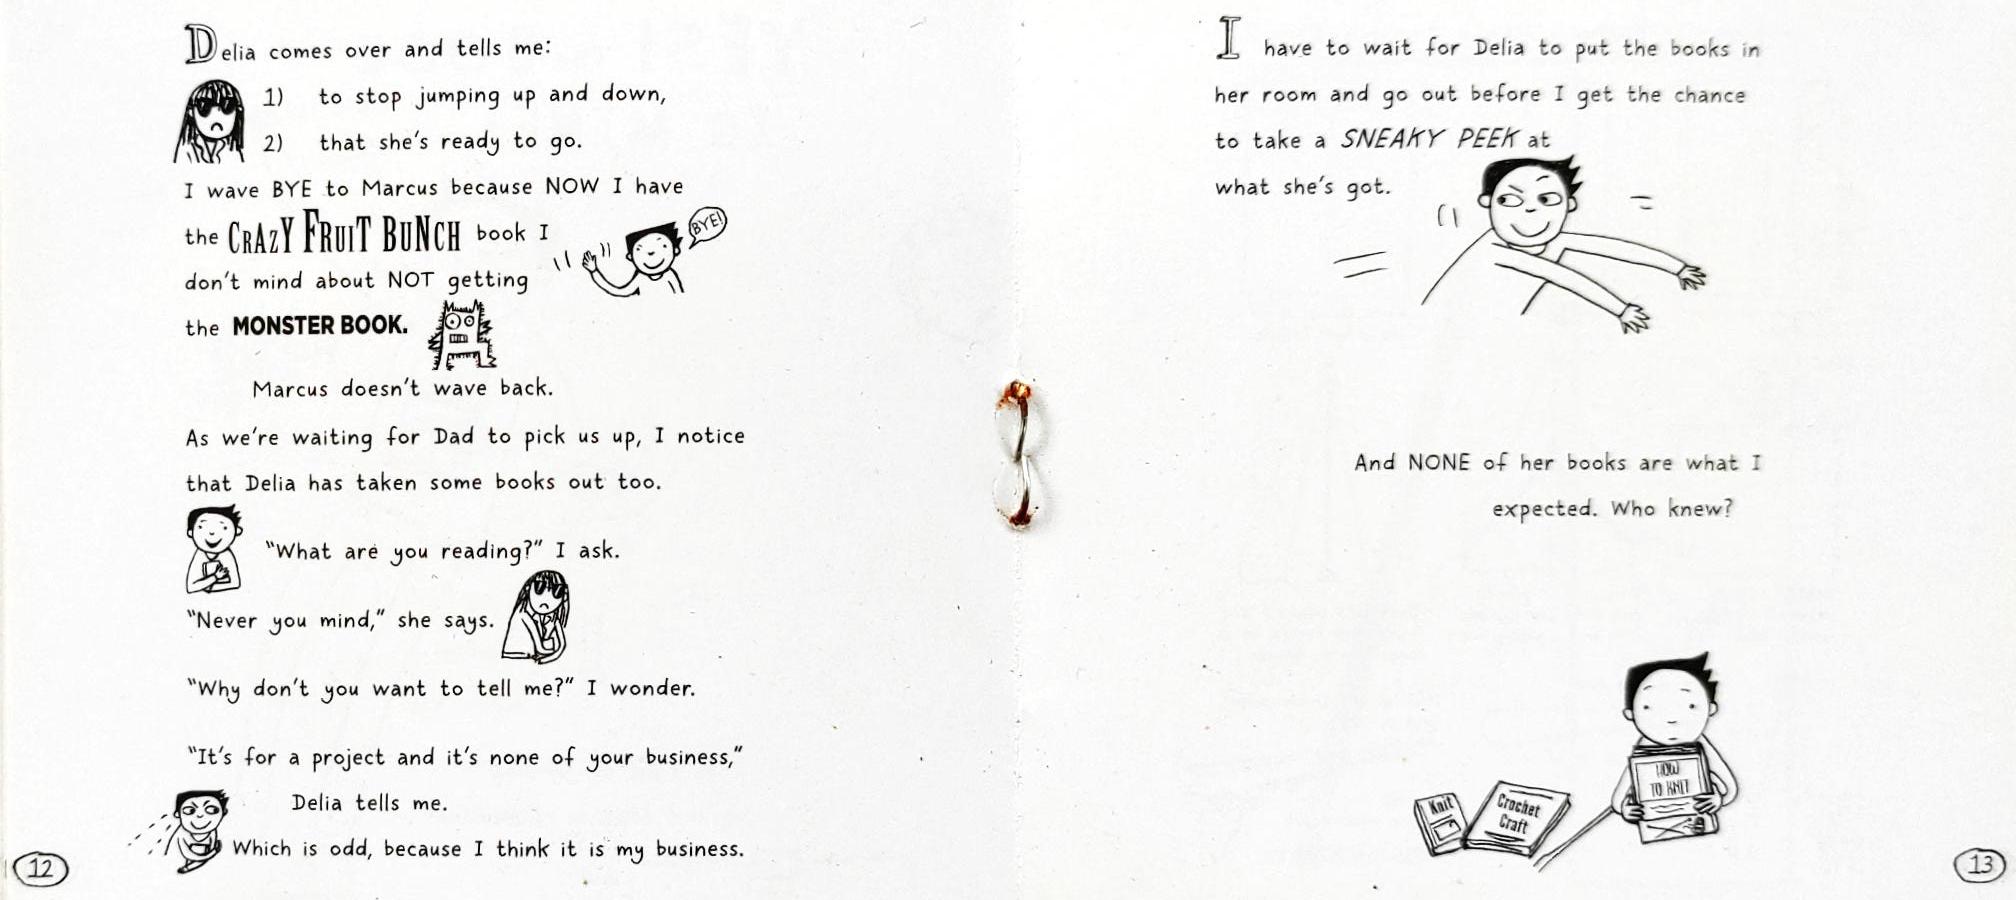 Delia comes over and tells me:
1) to stop jumping up and down,
2) that she's ready to go.
I wave BYE to Marcus because NOW I have
the CRAZY FRUIT BUNCH book I
BYE!
don't mind about NOT getting
the MONSTER BOOK.
Marcus doesn't wave back.
As we're waiting for Dad to pick us up, I notice
that Delia has taken some books out too.
"What are you reading?" I ask.
"Never you mind," she says.
"Why don't you want to tell me?" I wonder.
"It's for a project and it's none of your business,"
Delia tells me.
Which is odd, because I think it is my business.
12
I have to wait for Delia to put the books in
her room and go out before I get the chance
to take a SNEAKY PEEK at
what she's got.
And NONE of her books are what I
expected. Who knew?
HOW
TO KNIT
Knit
Crochet
Craft
13